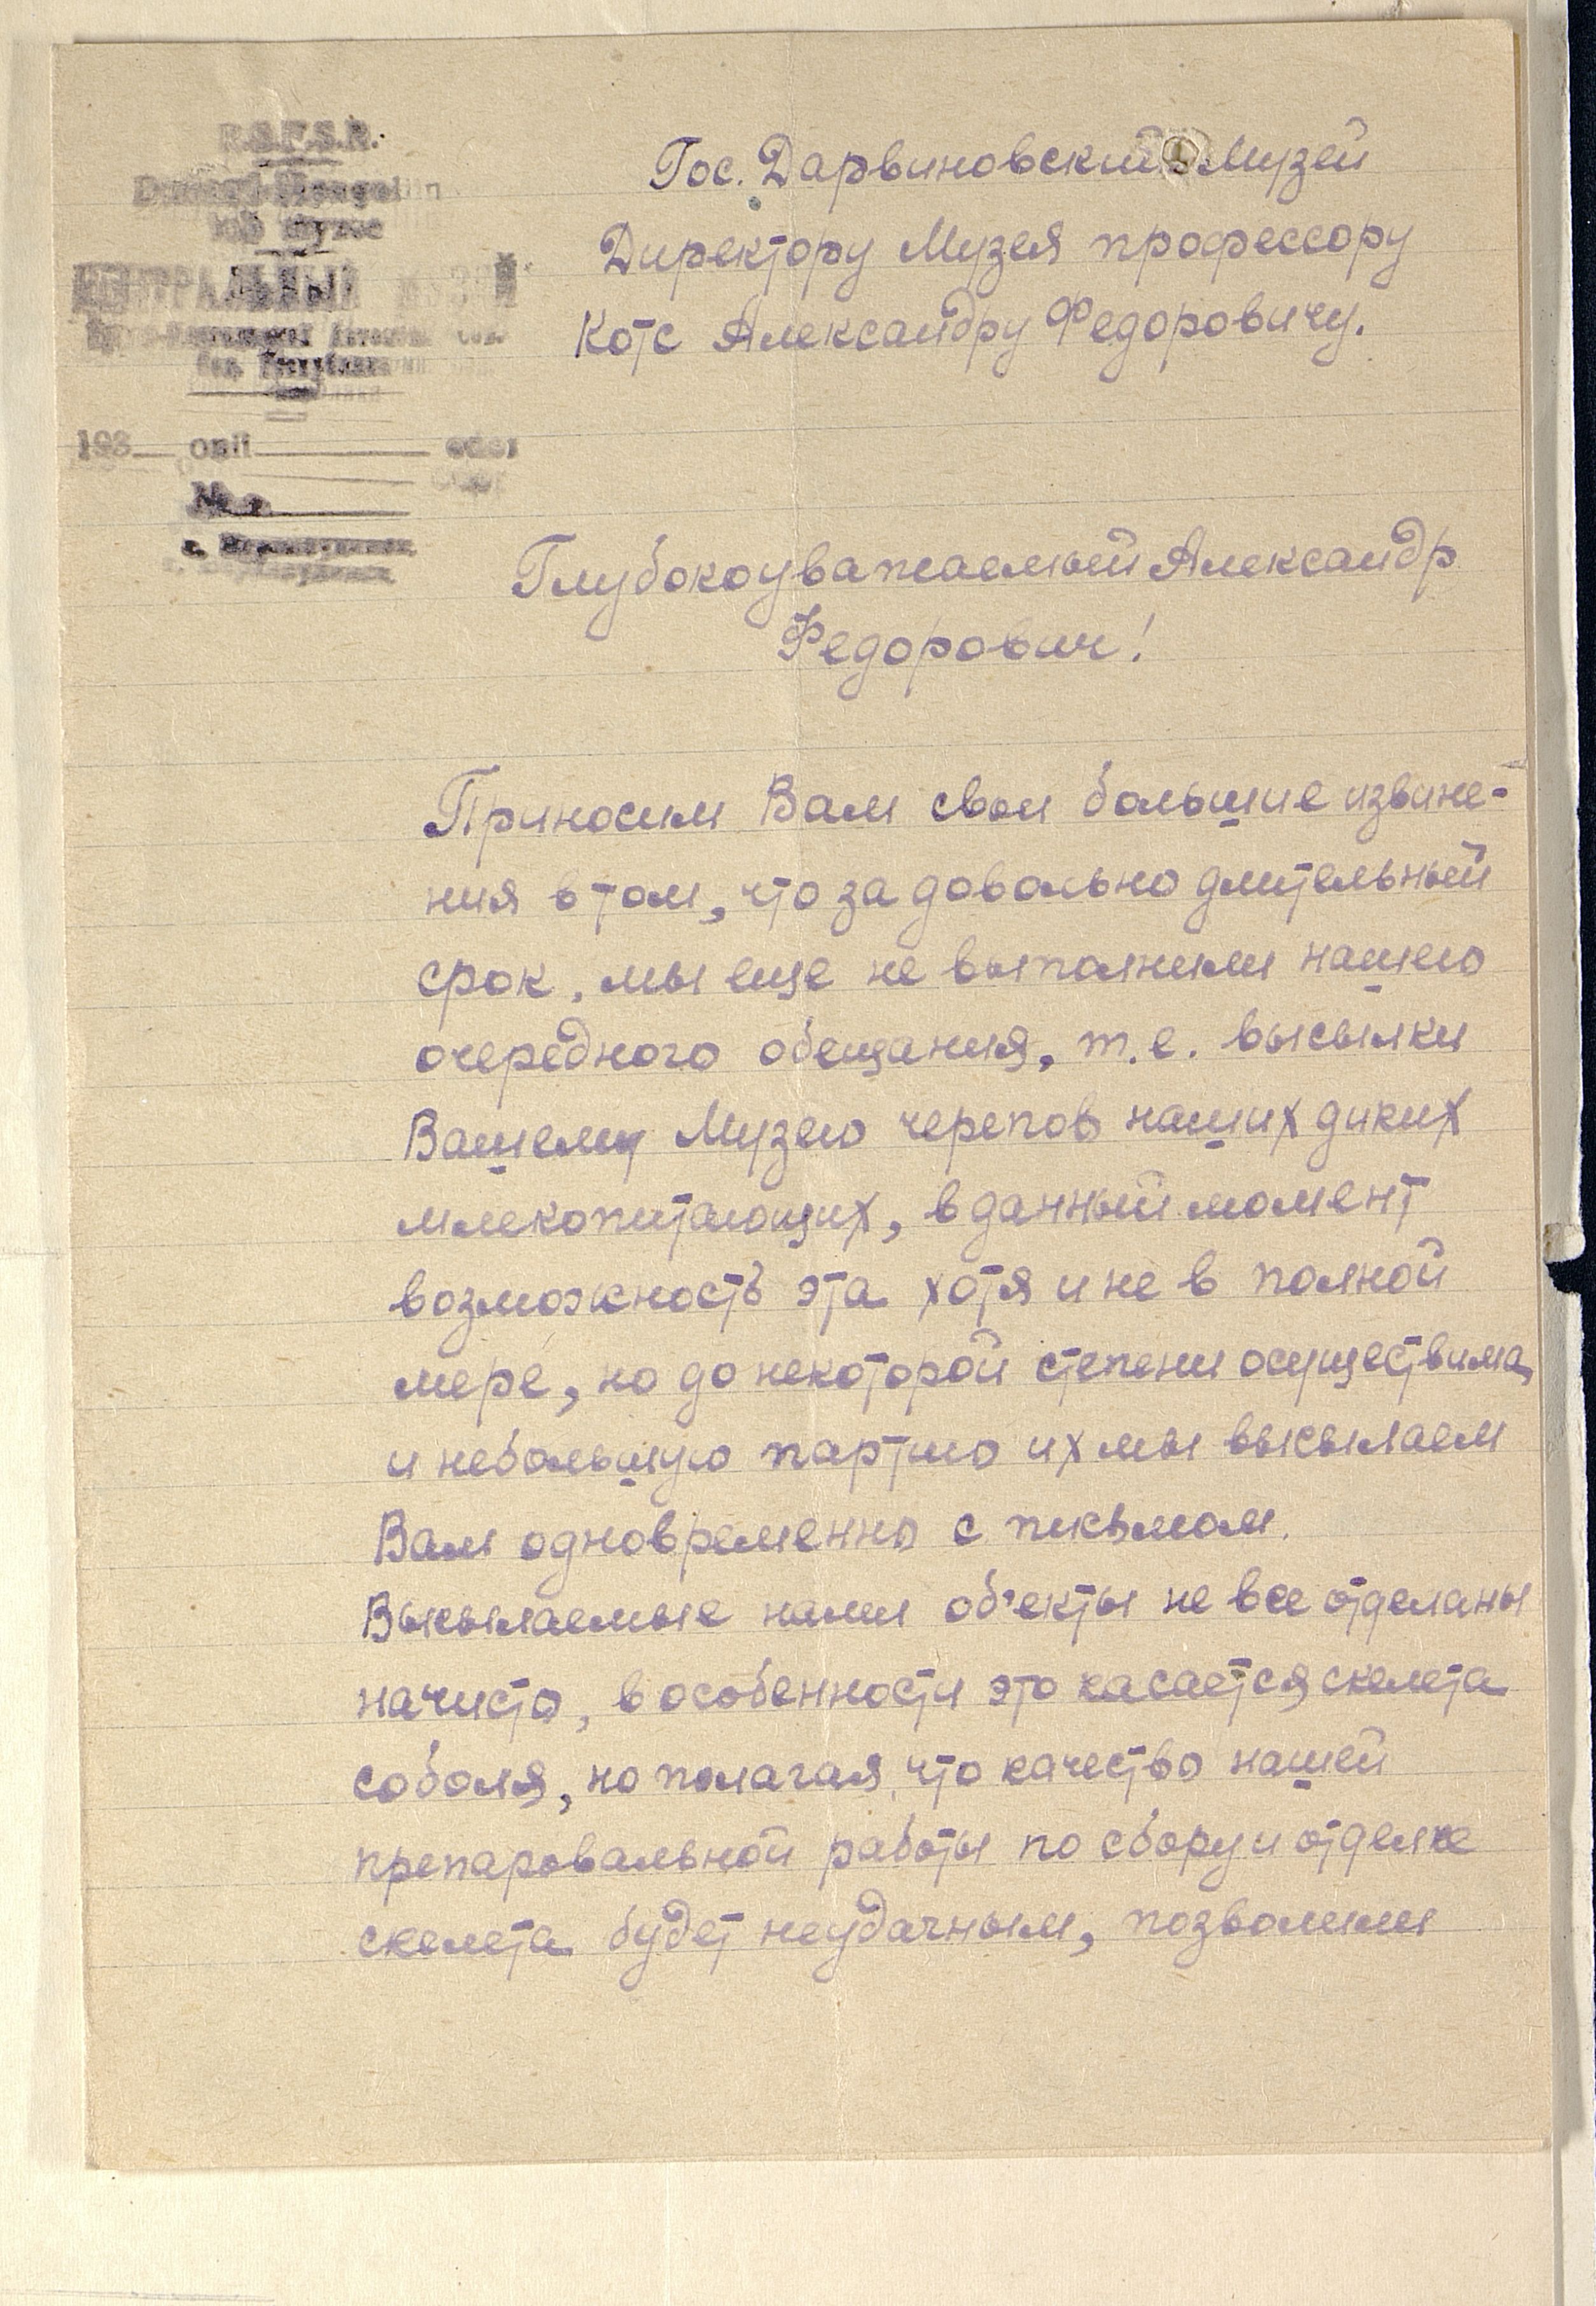 R.S.F.S.R.
ЦЕНТРАЛЬНЫЙ
193
№
Гос. Дарвиновский Музей
Директору Музея профессору
Котс Александру Федоровичу.
Глубокоуважаемый Александр
Федорович!
Приносим Вам свои большие извине-
ния в том, что за довольно длительный
срок, мы еще не выполнили нашего
очередного обещания, т.е. высылки
Вашему Музею черепов наших диких
млекопитающих, в данный момент
возможность эта хотя и не в полной
мере, но до некоторой степени осуществима,
и небольшую партию их мы высылаем
Вам одновременно с письмом.
Высылаемые нами об'екты не все отделаны
начисто, в особенности это касается скелета
соболя, но полагая, что качество нашей
препаровальной работы по сбору и отделке
скелета будет неудачным, позволили